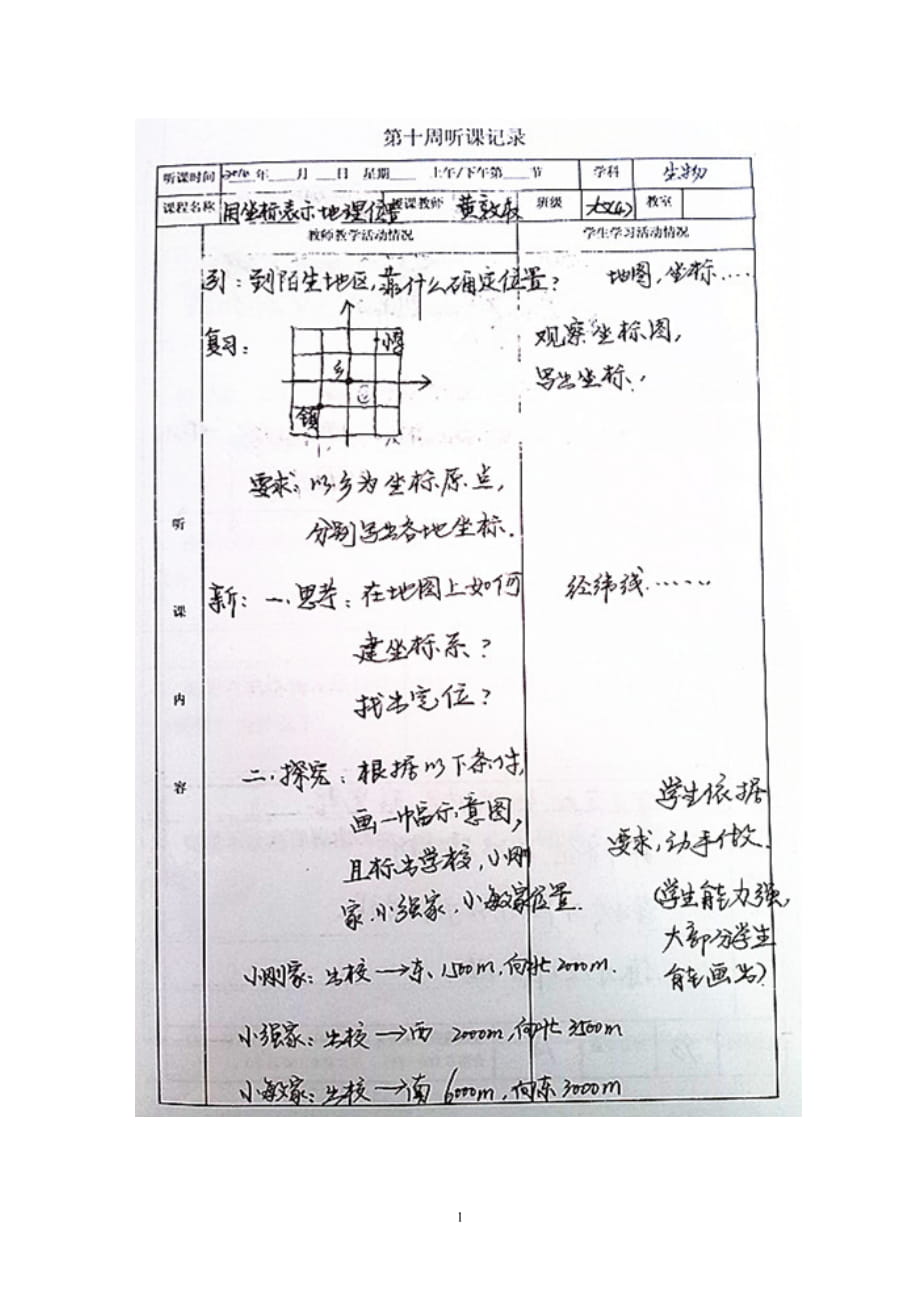 第十周听课记录
听课时间 2010 年 月 日 星期 上午/下午第 节 学科 生物
课程名称 用坐标表示地理位置 授课教师 班级 教室
教师教学活动情况 学生学习活动情况
引：到陌生地区，靠什么确定位置？ 地图，坐标……
复习： 观察坐标图，
写出坐标．
乡
镇
要求：以乡为坐标原点，
分别写出各地坐标．
听
课
内
容
新：一．思考：在地图上如何 经纬线……
建坐标系？
找出定位？
二．探究：根据以下条件， 学生依据
画一幅示意图， 要求，动手做．
且标出学校，小刚
家．小强家．小敏家位置． （学生能力强，
大部分学生
能画出）
小刚家：出校→东、1500m，向北2000m．
小强家：出校→西 2000m，向北3500m
小敏家：出校→南 6000m，向东3000m
1